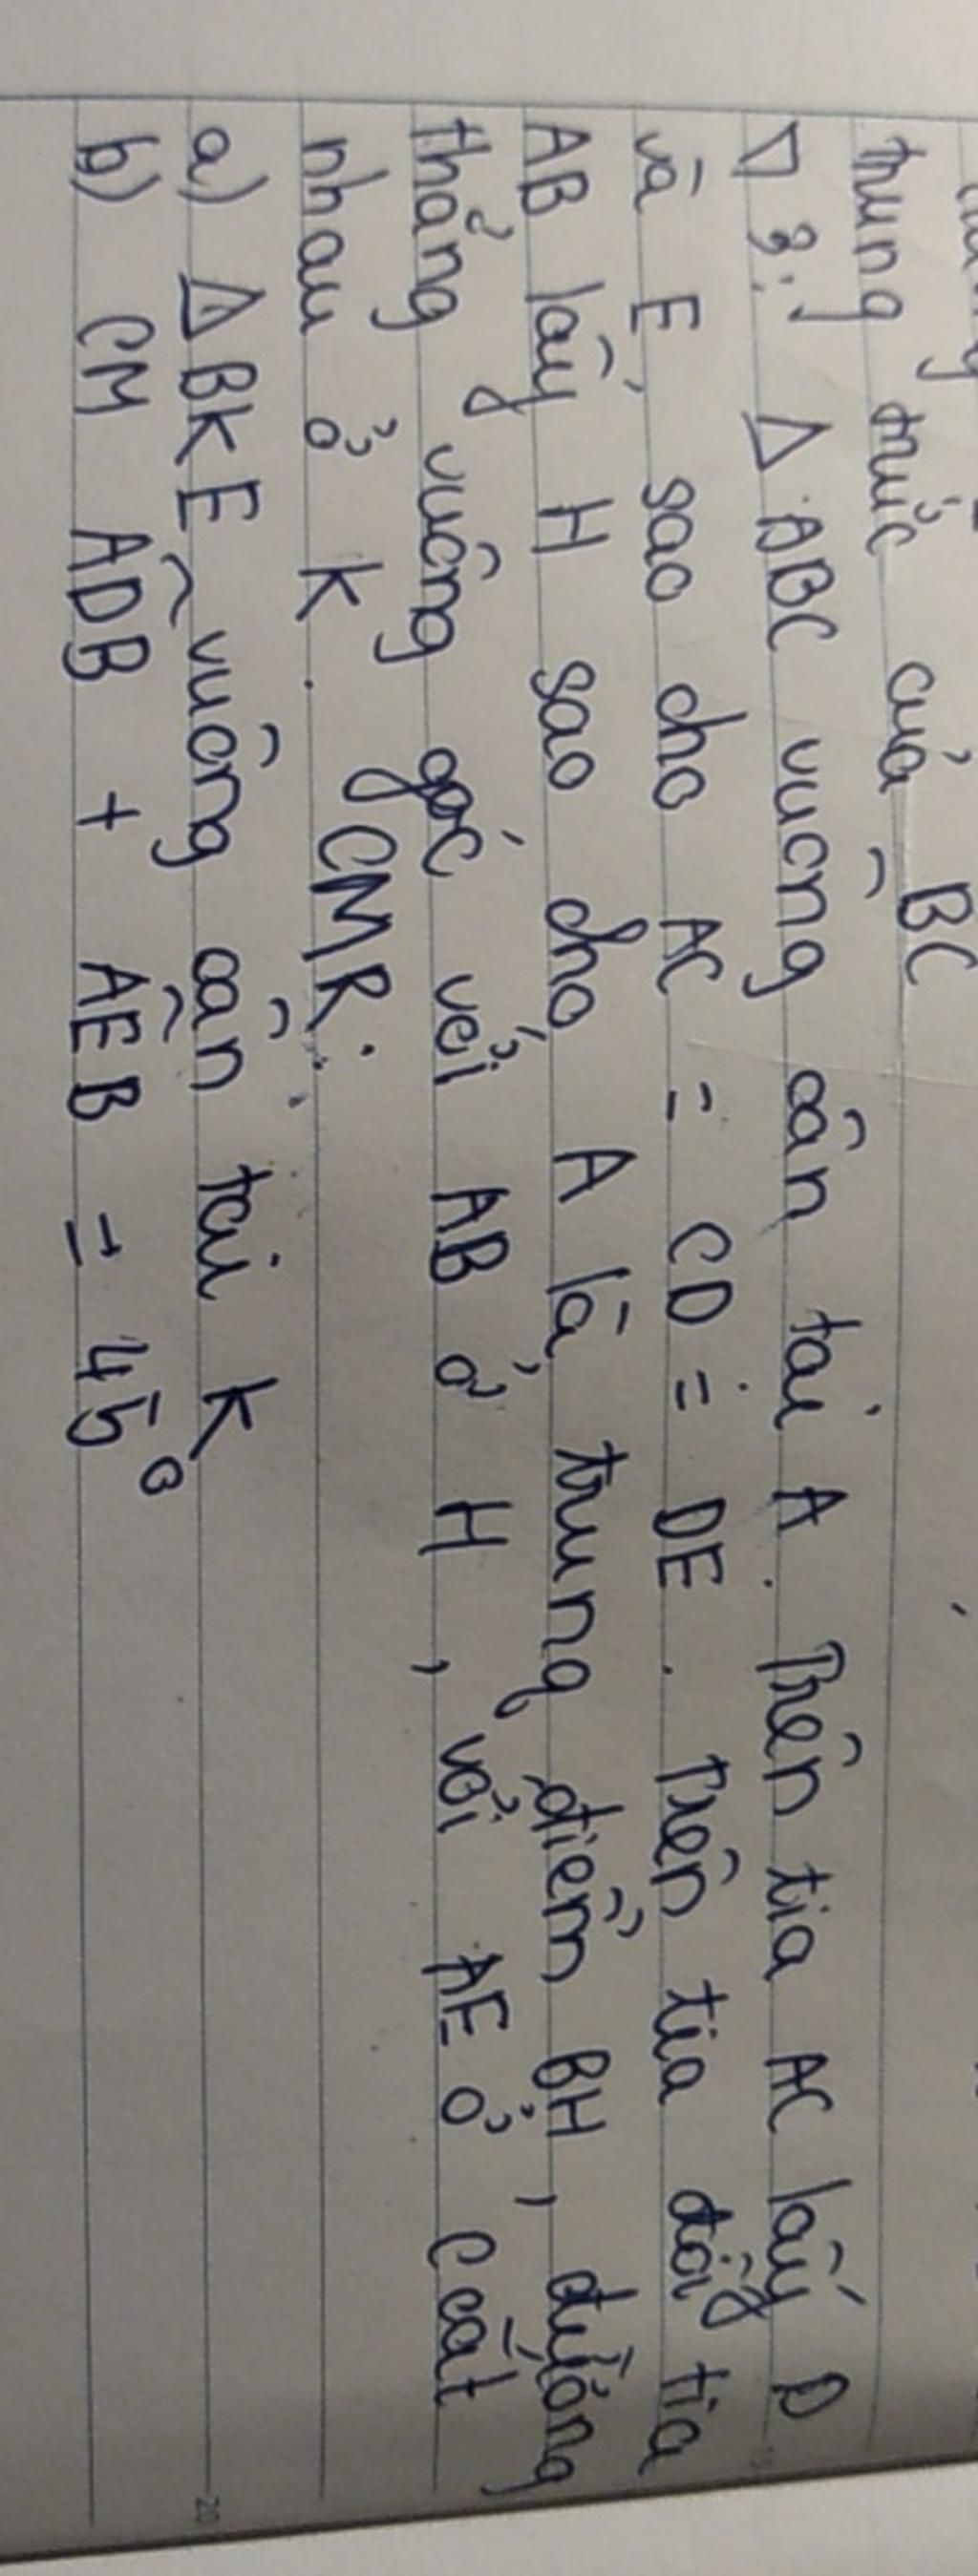 trung trực của BC
∇ 3: Δ ABC vuông cân tại A. Trên tia AC lấy D
và E, sao cho AC = CD = DE. Trên tia đối tia
AB lấy H sao cho A là trung điểm BH, đường
thẳng vuông góc với AB ở H, với AE ở C cắt
nhau ở K. CMR:
a) Δ BKE vuông cân tại K
b) CM ADB̂ + AEB̂ = 45°